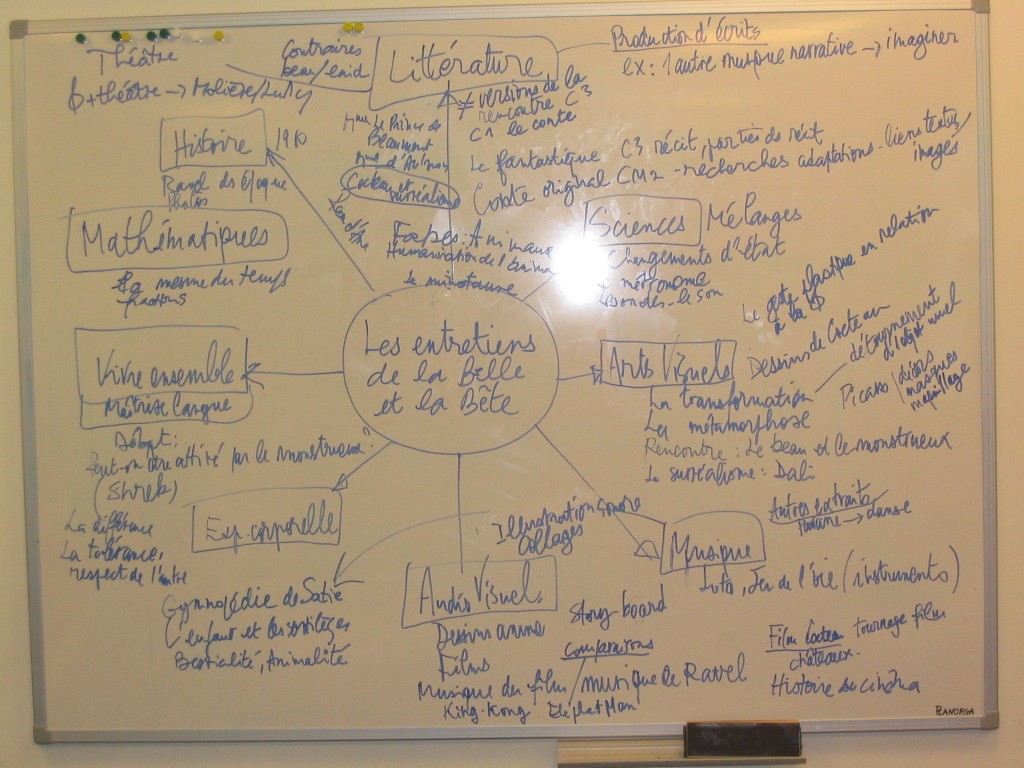 Théâtre
Contraires
beau/laid
Littérature
Production d'écrits
ex: 1 autre musique narrative → imaginer
+ théâtre → Molière/Lully
≠ versions de la
rencontre C3
C1 le conte
Histoire 1910
Ravel des époque
Photos
Mme Le Prince de
Beaumont
Mme d'Aulnoy
Cocteau et
surréalisme
Le fantastique C3 récit, parties de récit
Conte original CM2 - recherches adaptations - liens textes/
images
Fables: Animaux
Humanisation de l'anima
Le minotaure
Mathématiques
La mesure du temps
fractions
Sciences Mélanges
Changements d'état
métronome
Sondes - le son
Le geste plastique en relation
à la
Les entretiens
de la Belle
et la Bête
Vivre ensemble
Maîtrise langue
Débat:
Peut-on être attiré par le "monstrueux"?
(Shrek)
La différence
La tolérance,
respect de l'autre
Arts Visuels
Dessins de Cocteau
détournement
d'objet usuel
La transformation
La métamorphose
Picasso/dios
masques
maquillage
Rencontre: Le beau et le monstrueux
Le surréalisme: Dali
Exp. corporelle
Gymnopédie de Satie
L'enfant et les sortilèges
Bestialité, Animalité
Illustration sonore
Collages
Autres extraits
Pavane → danse
Musique
Loto, Jeu de l'oie (instruments)
Audio Visuel
Dessins anime
Films
Story-board
comparaisons
Musique du film / musique de Ravel
King-Kong Elephat Man
Film Cocteau tournage film
châteaux
Histoire du cinéma
PLANORGA